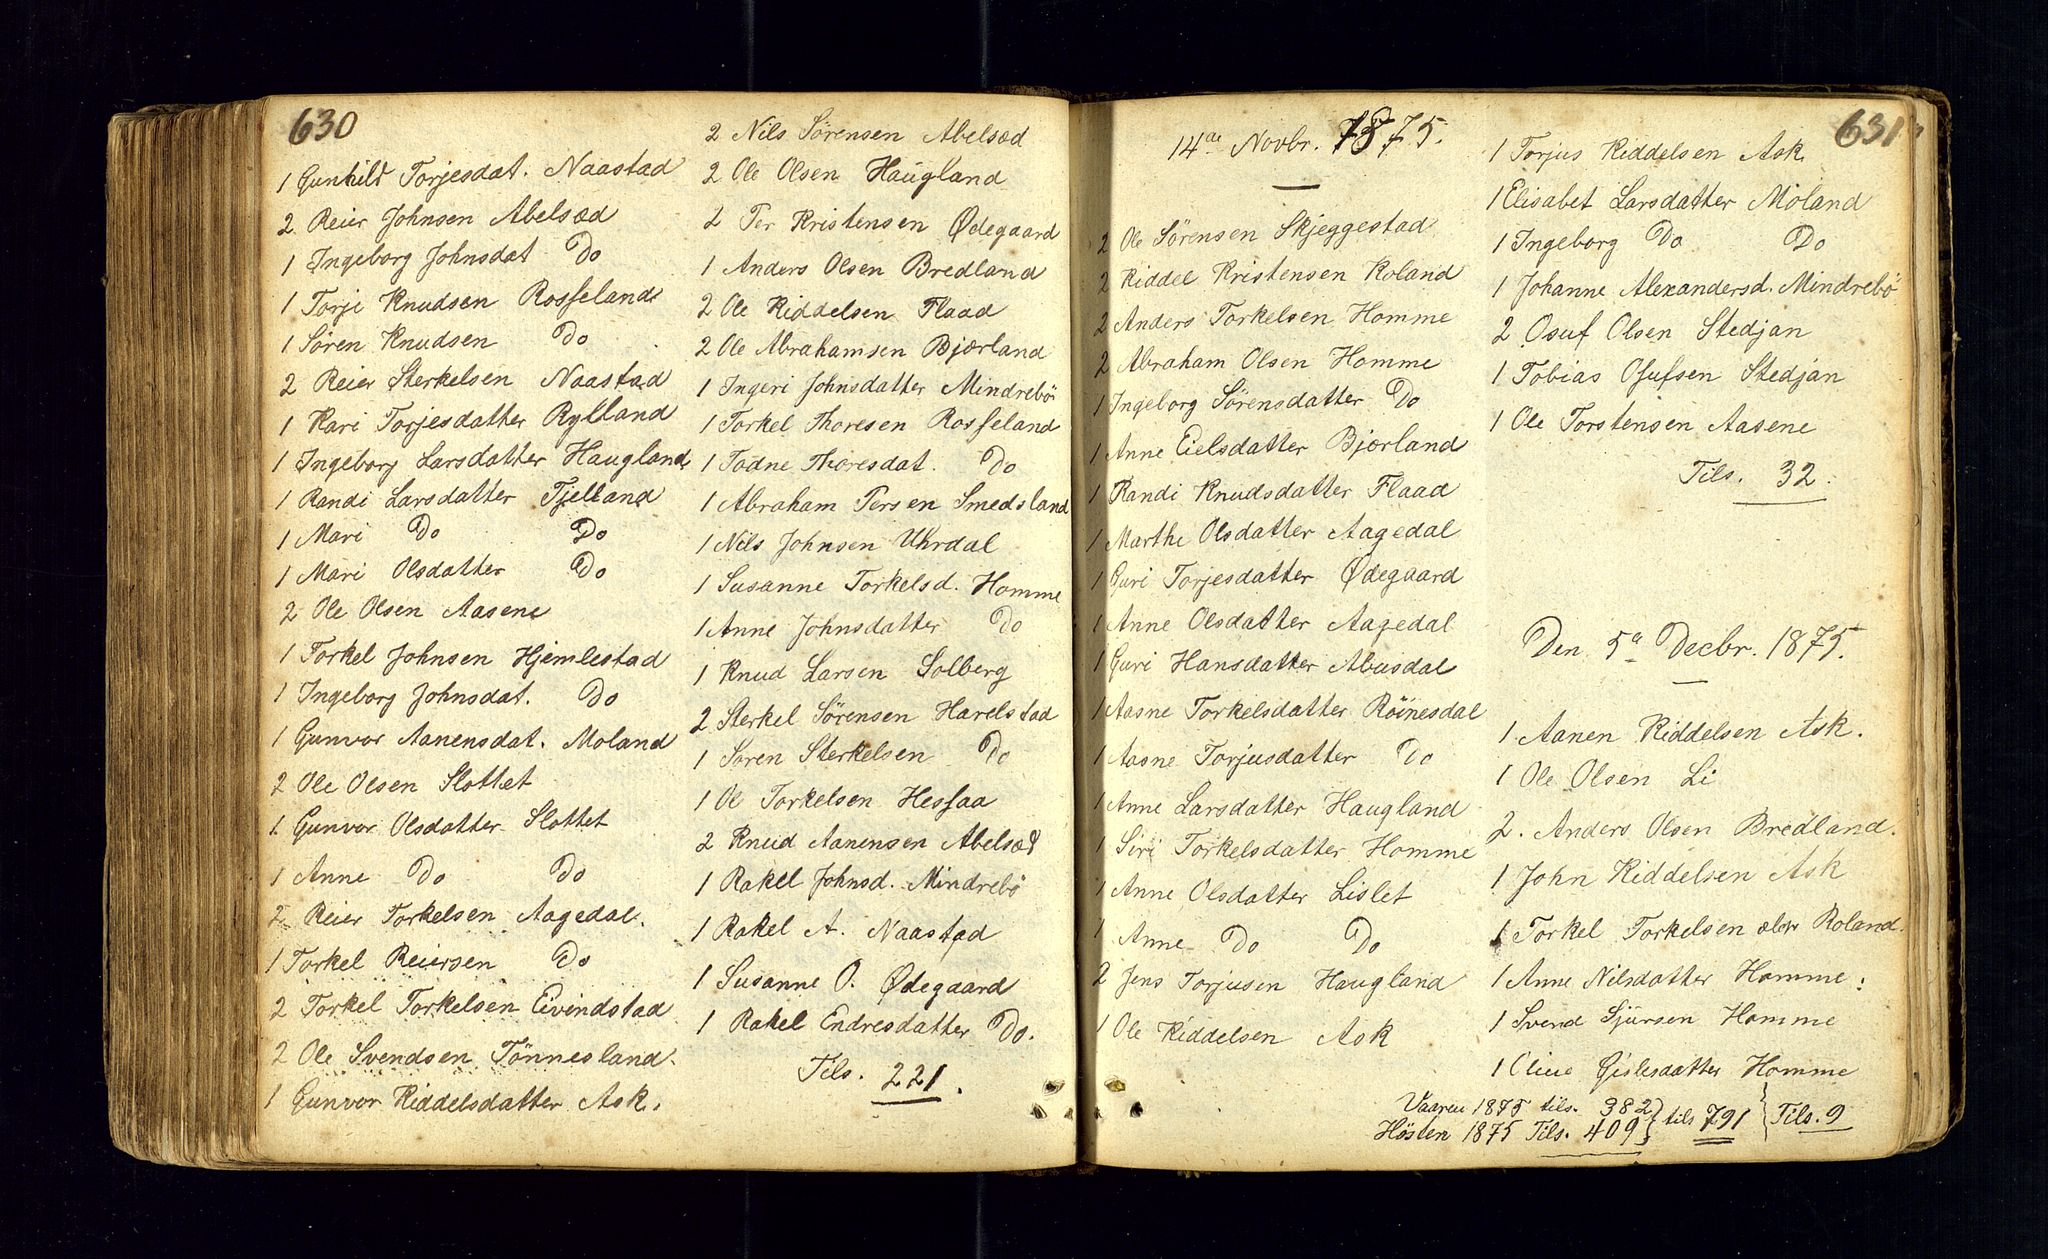 630
1 Gunhild Torjesdat. Naastad
2 Reier Johnsen Abelsæd
1 Ingeborg Johnsdat Do
1 Torje Knudsen Rosseland
1 Søren Knudsen Do
2 Reier Sterkelsen Naastad
1 Kari Torjesdatter Rylland
1 Ingeborg Larsdatter Haugland
1 Randi Larsdatter Tjelland
1 Mari Do Do
1 Mari Olsdatter Do
2 Ole Olsen Aasene
1 Torkel Johnsen Hjemlestad
1 Ingeborg Johnsdat. Do
1 Gunvor Aanensdat. Moland
2 Ole Olsen Slottet
1 Gunvor Olsdatter Slottet
1 Anne Do Do
2 Reier Torkelsen Aagedal.
1 Torkel Reiersen Do
2 Torkel Torkelsen Eivindstad
2 Ole Svendsen Tönnesland.
1 Gunvor Kiddelsdatter Ask.
2 Nils Sørensen Abelsæd
2 Ole Olsen Haugland
2 Per Kristensen Ødegaard
1 Anders Olsen Bredland
2 Ole Kiddelsen Flaad
2 Ole Abrahamsen Bjærland
1 Ingeri Johnsdatter Mindrebö
1 Torkel Thoresen Rosseland
1 Todne Thoresdat. Do
1 Abraham Persen Smedsland
1 Nils Johnsen Uhrdal
1 Susanne Torkelsd. Homme
1 Anne Johnsdatter Do
1 Knud Larsen Solberg
2 Sterkel Sörensen Harelstad
1 Sören Sterkelsen Do
1 Ol Torkelsen Hessaa
2 Knud Aanensen Abelsæd
1 Rakel Johnsd. Mindrebö
1 Rakel A. Naastad
1 Susanne O. Ødegaard
1 Rakel Endresdatter Do.
Tils. 221.
631
14de Novbr. 1875.
2 Ole Sörensen Skjeggestad
2 Kiddel Kristensen Roland
2 Anders Torkelsen Homme
2 Abraham Olsen Homme
1 Ingeborg Sörensdatter Do
1 Anne Eielsdatter Bjærland
1 Randi Knudsdatter Flaad
1 Marthe Olsdatter Aagedal
1 Guri Torjesdatter Ødegaard
1 Anne Olsdatter Aagedal
1 Guri Hansdatter Abusdal
1 Aasne Torkelsdatter Röinesdal
1 Aasne Torjusdatter Do
1 Anne Larsdatter Haugland
1 Siri Torkelsdatter Homme
1 Anne Olsdatter Lislet
1 Anne Do Do
2 Jens Torjusen Haugland
1 Ole Kiddelsen Ask
1 Torjus Kiddelsen Ask
1 Elisabet Larsdatter Moland
1 Ingeborg Do Do
1 Johanne Alexandersd. Mindrebö
2 Osuf Olsen Stedjan
1 Tobias Osufsen Stedjan
1 Ole Torstensen Aasene
Tils. 32.
Den 5te Decbr. 1875.
1 Aanen Kiddelsen Ask.
1 Ole Olsen Li
2. Anders Olsen Bredland.
1 John Kiddelsen Ask
1 Torkel Torkelsen Roland.
1 Anne Nilsdatter Homme:
1 Svend Sjursen Homme
1 Gislesdatter Homme
Vaaren 1875 tils. 382 } tils 791 } Tils. 9
Hösten 1875 Tils. 409